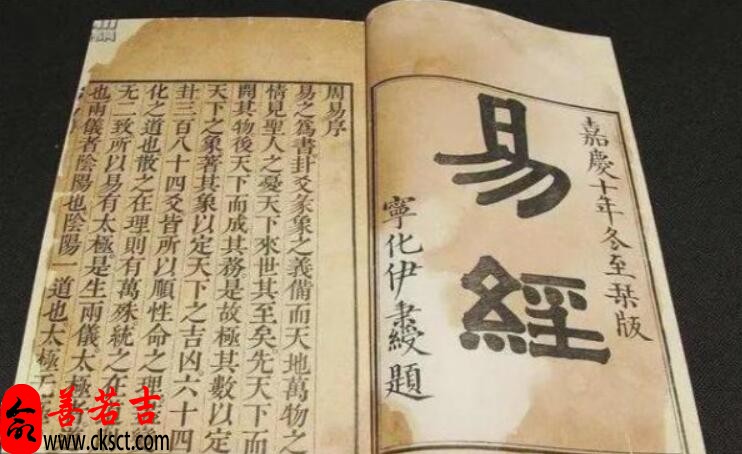 嘉慶十年冬至栞版
易經
寧化伊秉綬題
周易序
易之爲書卦爻彖象之義備而天地萬物之
情見聖人之憂天下來世其至矣先天下而
開其物後天下而成其務是故極其數以定
天下之象著其象以定天下之吉凶六十四
卦三百八十四爻皆所以順性命之理
化之道也散之在理則有萬殊統之在
无二致所以易有太極是生兩儀太極者道
也兩儀者陰陽也陰陽一道也太極无
善若吉
www.cksct.com